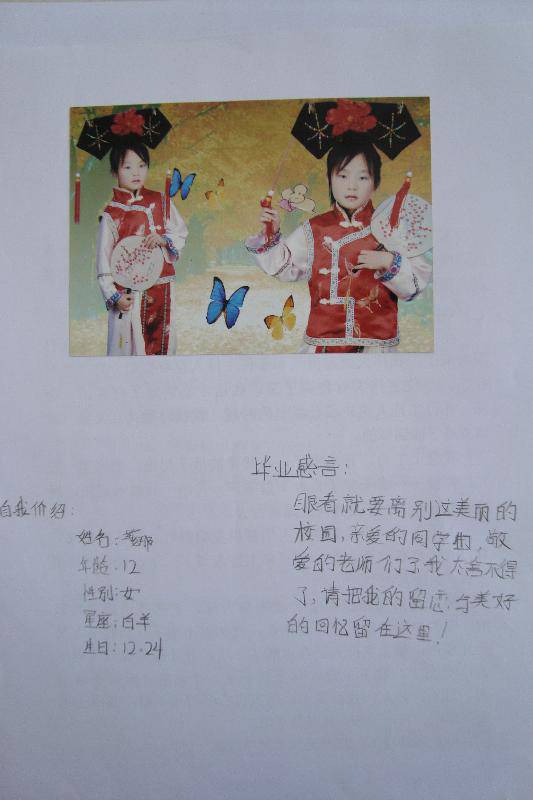 自我介绍：
姓名：
年龄：12
性别：女
星座：白羊
生日：12.24
毕业感言：
眼看就要离别这美丽的
校园，亲爱的同学们，敬
爱的老师们了，我太舍不得
了，请把我的留恋与美好
的回忆留在这里！